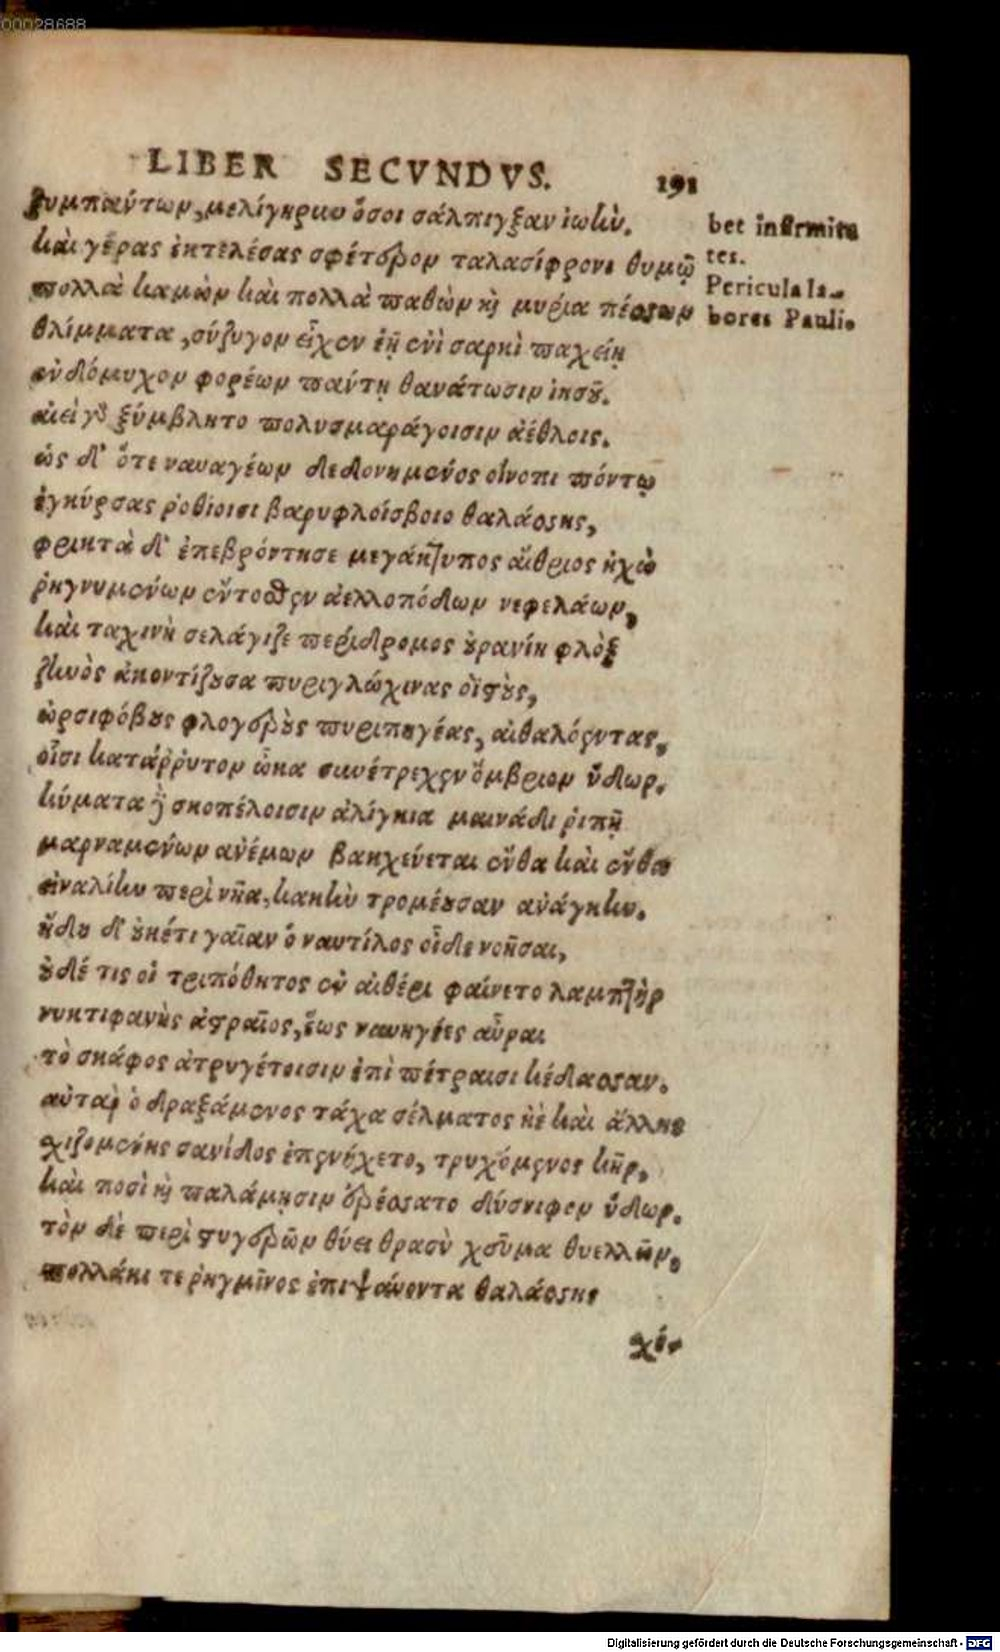 00028688
LIBER SECVNDVS. 191
ξυμπάντων, μελίγηρυν ὅσοι σάλπιγξαν ἰωὴν.
καὶ γέρας ἐκτελέσας σφέτερον ταλασίφρονι θυμῷ
πολλὰ καμὼν καὶ πολλὰ παθὼν καὶ μυρία πέσσων
θλίμματα, σύζυγον εἶχεν ἑῇ ἐνὶ σαρκὶ παχείῃ
ἐνδόμυχον φορέων πάντῃ θανάτωσιν ἰησοῦ.
αἰεὶ γὰρ ξύμβλητο πολυσμαράγοισιν ἀέθλοις.
ὡς δ' ὅτε ναυαγέων δεδονημένος οἴνοπι πόντῳ
ἐγκύρσας ῥοθίοισι βαρυφλοίσβοιο θαλάσσης,
φρικτὰ δ' ἐπεβρόντησε μεγάκτυπος αἴθριος ἠχὼ
ῥηγνυμένων ἔντοσθεν ἀελλοπόδων νεφελάων,
καὶ ταχινὴ σελάγιζε περίδρομος οὐρανίη φλὸξ
ζηνὸς ἀκοντίζουσα πυριγλώχινας ὀϊστοὺς,
ὠρσιφόβους φλογεροὺς πυριπηγέας, αἰθαλόεντας,
οἷσι κατάῤῥυτον ὦκα συνέτρεχεν ὄμβριον ὕδωρ.
κύματα δὲ σκοπέλοισιν ἀλίγκια μαινάδι ῥιπῇ
μαρναμένων ἀνέμων βακχεύεται ἔνθα καὶ ἔνθα
εἰναλίην περὶ νῆα, κακὴν τρομέουσαν ἀνάγκην.
ἤδη δ' οὐκέτι γαῖαν ὁ ναυτίλος οἶδε νοῆσαι,
οὐδέ τις οἱ τριπόθητος ἐν αἰθέρι φαίνετο λαμπτὴρ
νυκτιφανὴς ἀστραῖος, ἕως ναυηγέες αὖραι
τὸ σκάφος ἀτρυγέτοισιν ἐπὶ πέτραισι κέδασσαν.
αὐτὰρ ὁ δραξάμενος τάχα σέλματος ἠὲ καὶ ἄλλης
σχιζομένης σανίδος ἐπενήχετο, τρυχόμενος κῆρ,
καὶ ποσὶ καὶ παλάμῃσιν ἐρέσσατο δύσνιφον ὕδωρ.
τὸν δὲ περὶ στυγερῶν θύει θρασὺ χεῦμα θυελλῶν,
πολλάκι τε ῥηγμῖνος ἐπιψαύοντα θαλάσσης
χέ-
bet infirmita
tes.
Pericula la-
bores Pauli.
Digitalisierung gefördert durch die Deutsche Forschungsgemeinschaft - DFG